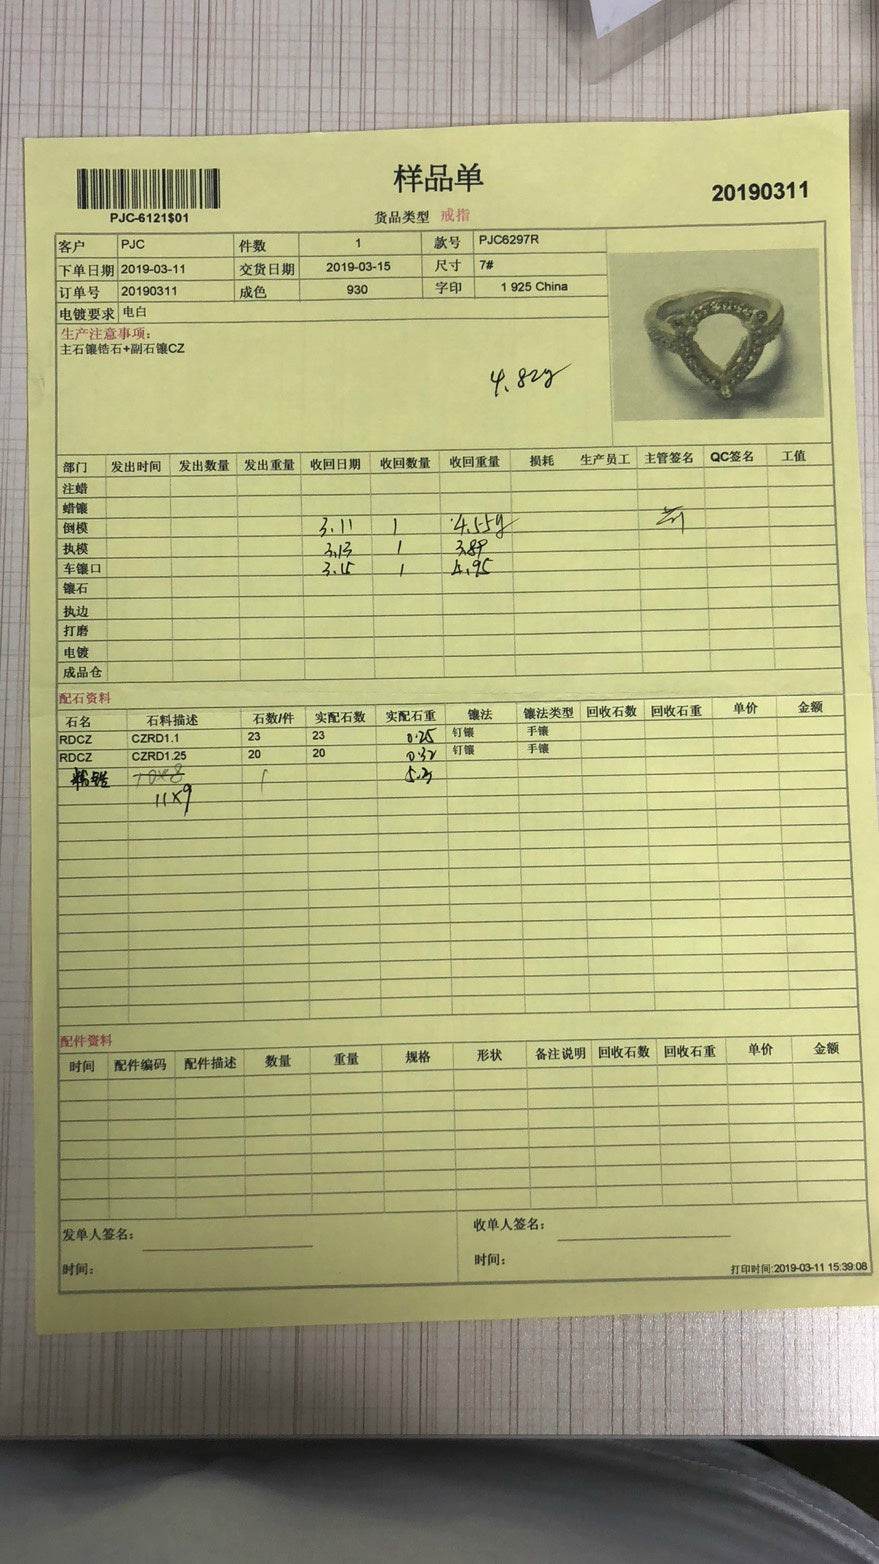 样品单
20190311
PJC-6121$01
货品类型 戒指
客户 PJC 件数 1 款号 PJC6297R
下单日期 2019-03-11 交货日期 2019-03-15 尺寸 7#
订单号 20190311 成色 930 字印 1 925 China
电镀要求 电白
生产注意事项:
主石镶锆石+副石镶CZ
4.82g
部门 发出时间 发出数量 发出重量 收回日期 收回数量 收回重量 损耗 生产员工 主管签名 QC签名 工值
注蜡
蜡镶
倒模 3.11 1 4.55g
执模 3.13 1 3.89
车镶口 3.15 1 4.95
镶石
执边
打磨
电镀
成品仓
配石资料
石名 石料描述 石数/件 实配石数 实配石重 镶法 镶法类型 回收石数 回收石重 单价 金额
RDCZ CZRD1.1 23 23 0.25 钉镶 手镶
RDCZ CZRD1.25 20 20 0.32 钉镶 手镶
10×8 1
11×9
配件资料
时间 配件编码 配件描述 数量 重量 规格 形状 备注说明 回收石数 回收石重 单价 金额
发单人签名: 收单人签名:
时间: 时间:
打印时间:2019-03-11 15:39:08